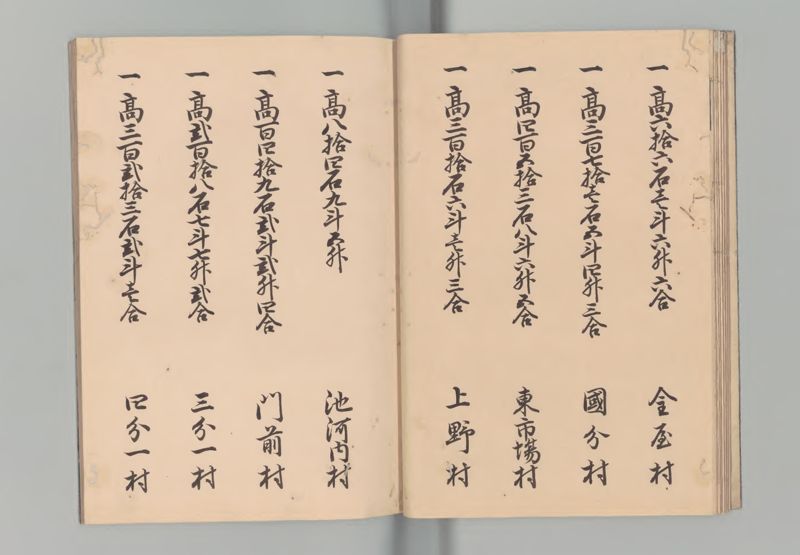 一高六拾六石壱斗六升六合 金屋村
一高三百七拾壱石五斗四升三合 國分村
一高四百五拾三石八斗六升五合 東市場村
一高三百拾石六斗壱升三合 上野村
一高八拾四石九斗五升 池河内村
一高百四拾九石弐斗弐升四合 門前村
一高弐百拾八石七斗七升弐合 三分一村
一高三百弐拾三石弐斗壱合 四分一村